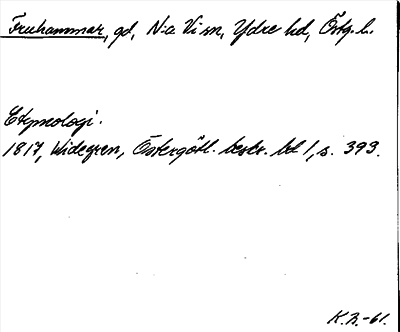 Fruhammar, gd, N:a Vi sn, Ydre hd, Östg. l.
Etymologi.
1817, Widegren, Östergötl. beskr. bd 1, s. 393.
K.B.-61.